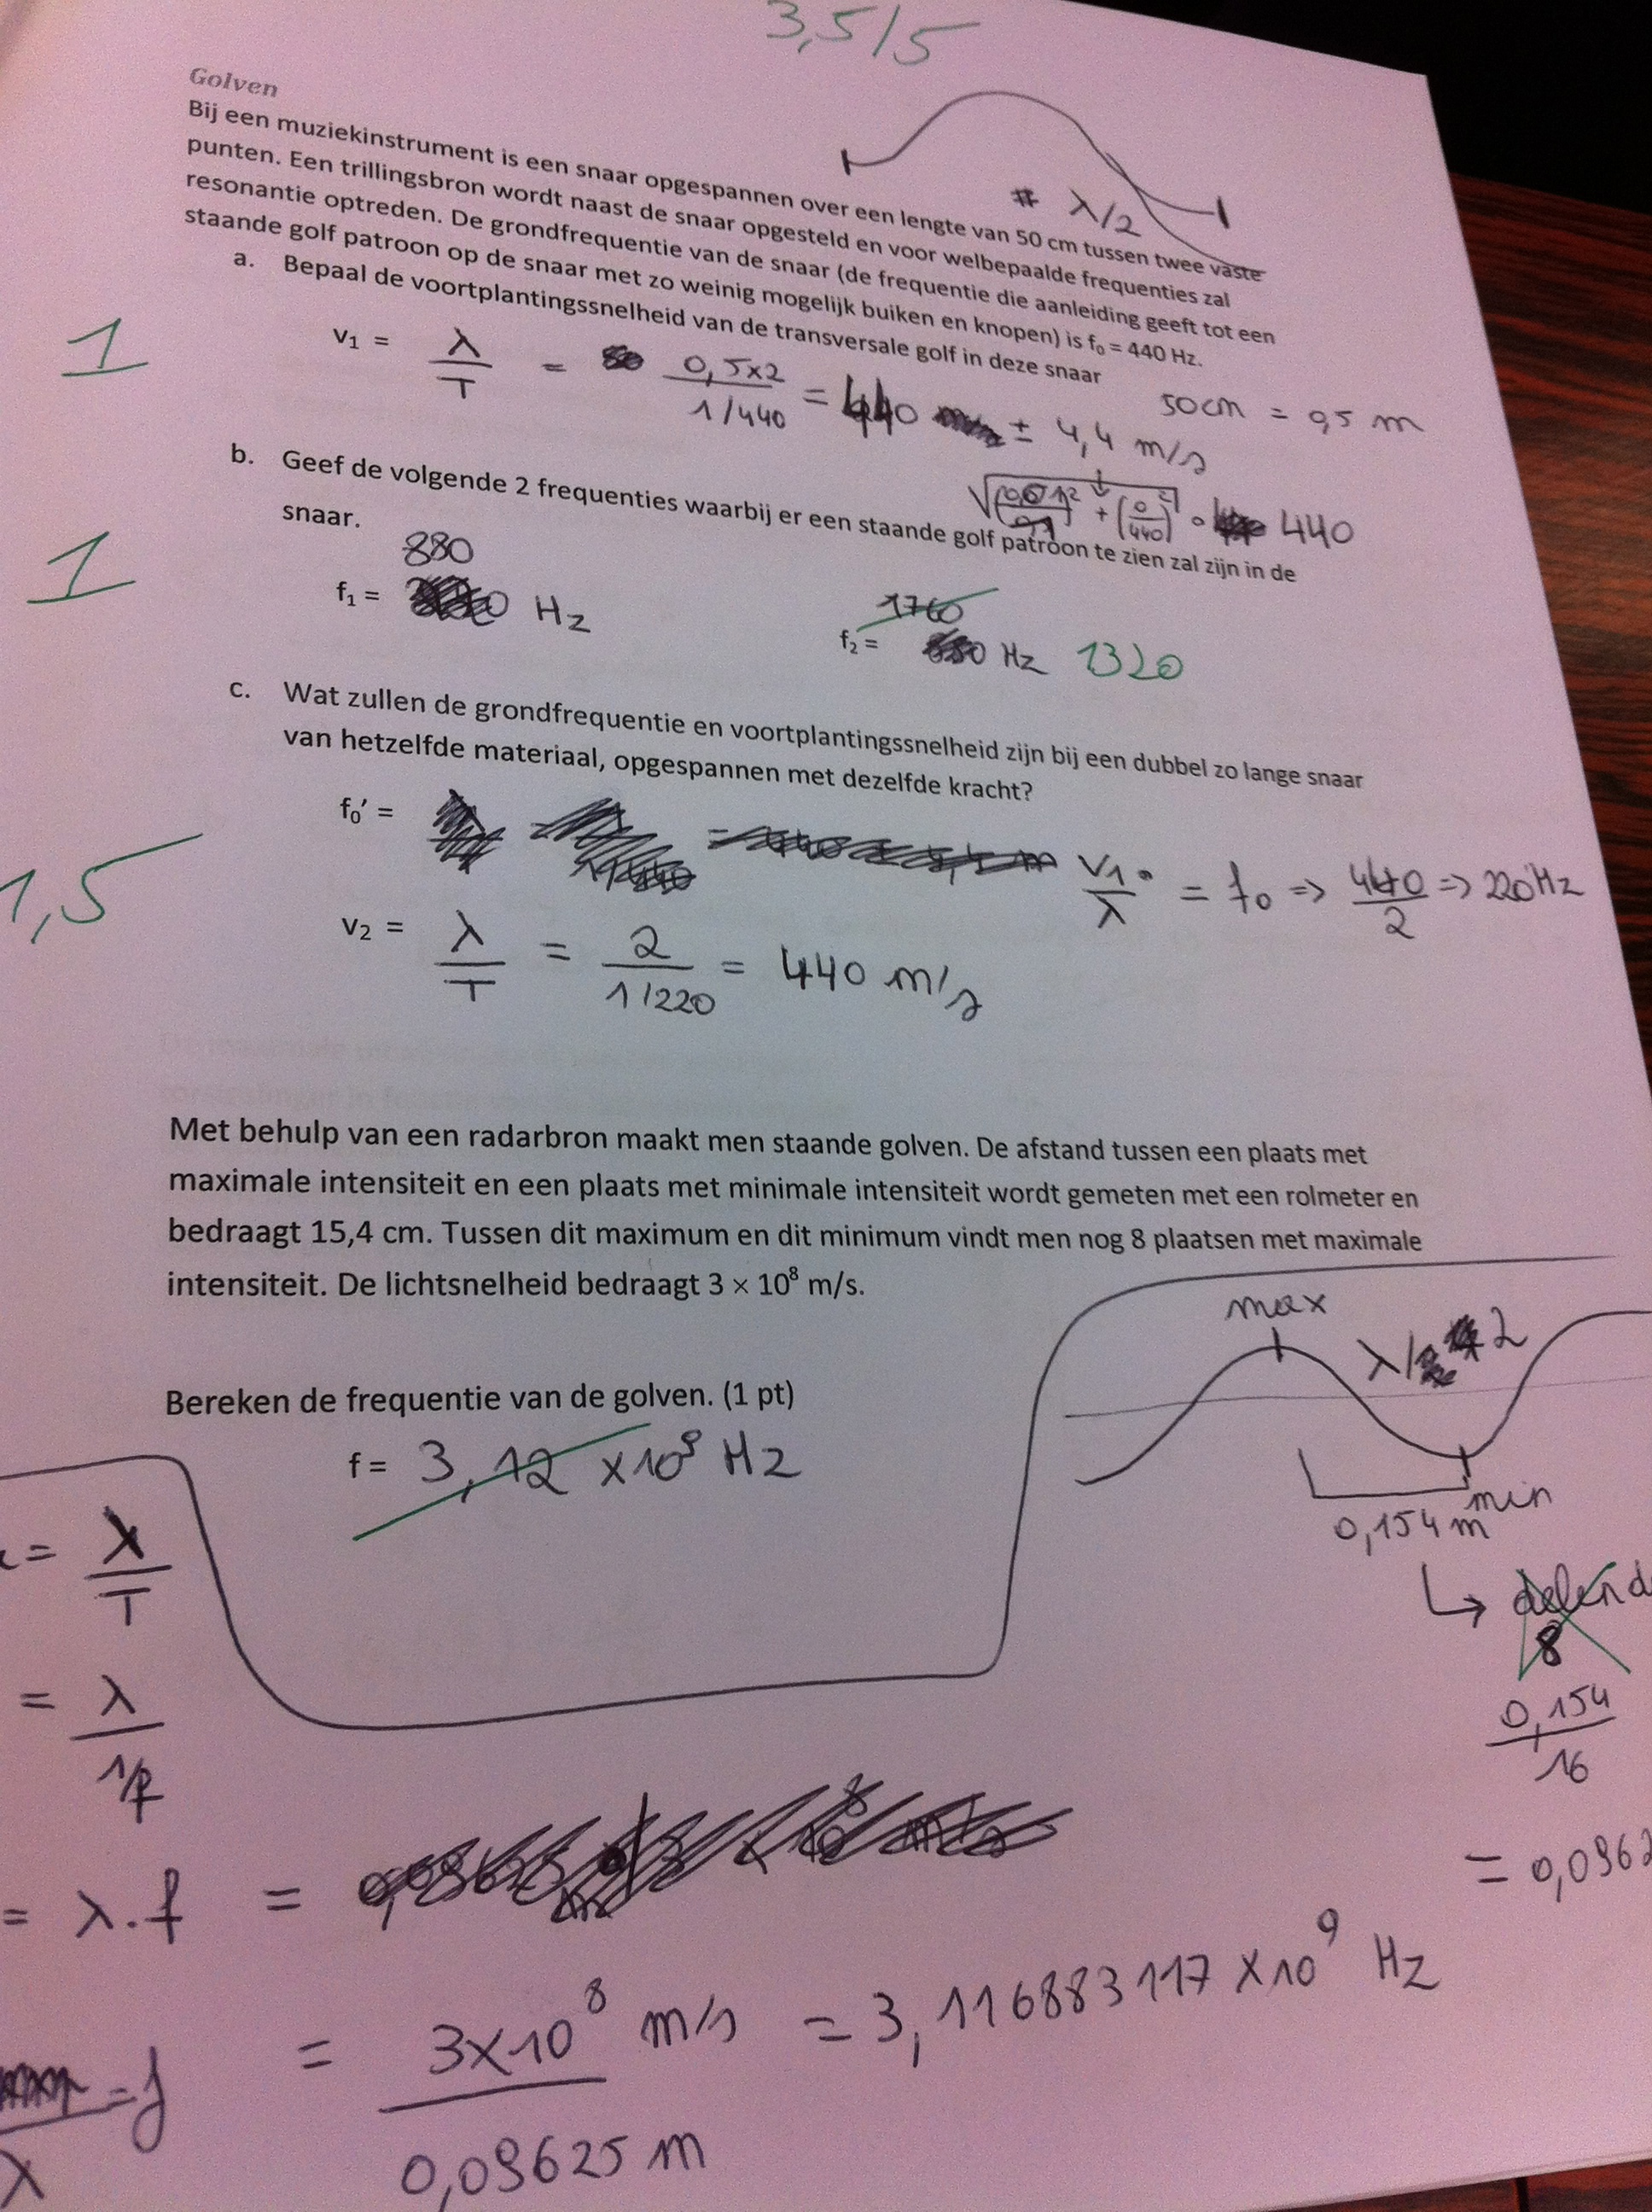 3,5/5
Golven
Bij een muziekinstrument is een snaar opgespannen over een lengte van 50 cm tussen twee vaste
punten. Een trillingsbron wordt naast de snaar opgesteld en voor welbepaalde frequenties zal
resonantie optreden. De grondfrequentie van de snaar (de frequentie die aanleiding geeft tot een
staande golf patroon op de snaar met zo weinig mogelijk buiken en knopen) is f₀ = 440 Hz.
λ/2
a. Bepaal de voortplantingssnelheid van de transversale golf in deze snaar
1
v₁ = λ/T = 0,5x2 / 1/440 = 440 ± 4,4 m/s
50cm = 0,5 m
+ (0/440)² · 440
b. Geef de volgende 2 frequenties waarbij er een staande golf patroon te zien zal zijn in de
snaar.
1
880
f₁ = Hz
1760
f₂ = Hz 1320
c. Wat zullen de grondfrequentie en voortplantingssnelheid zijn bij een dubbel zo lange snaar
van hetzelfde materiaal, opgespannen met dezelfde kracht?
f₀' = V₁/λ = f₀ => 440/2 => 220 Hz
1,5
v₂ = λ/T = 2 / 1/220 = 440 m/s
Met behulp van een radarbron maakt men staande golven. De afstand tussen een plaats met
maximale intensiteit en een plaats met minimale intensiteit wordt gemeten met een rolmeter en
bedraagt 15,4 cm. Tussen dit maximum en dit minimum vindt men nog 8 plaatsen met maximale
intensiteit. De lichtsnelheid bedraagt 3 × 10⁸ m/s.
max
λ/2
Bereken de frequentie van de golven. (1 pt)
f = 3,12 x10⁹ Hz
min
0,154 m
= λ/T
8
= λ / 1/f
0,154 / 16
= λ.f =
= 0,0962
= f = 3x10⁸ m/s / 0,09625 m = 3,116883117 x10⁹ Hz
λ